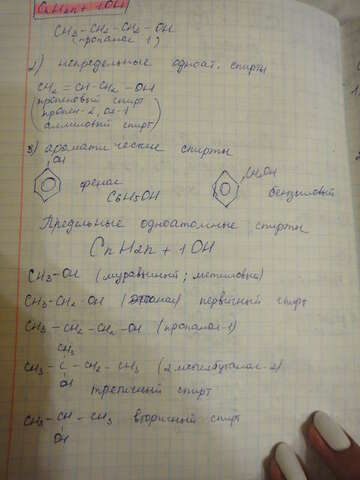 CnH2n+1OH
CH3-CH2-CH2-OH
(пропанол 1)
2) непредельные одноат. спирты
CH2=CH-CH2-OH
пропеновый спирт
(пропен-2, ол-1
аллиловый спирт)
3) ароматические спирты
OH
фенол
C6H5OH
CH2OH
бензиловый
Предельные одноатомные спирты
CnH2n+1OH
CH3-OH (муравьиный; метиловый)
CH3-CH2-OH (этанол) первичный спирт
CH3-CH2-CH2-OH (пропанол-1)
CH3
CH3-C-CH2-CH3 (2метилбутанол-2)
OH
третичный спирт
CH3-CH-CH3 вторичный спирт
OH